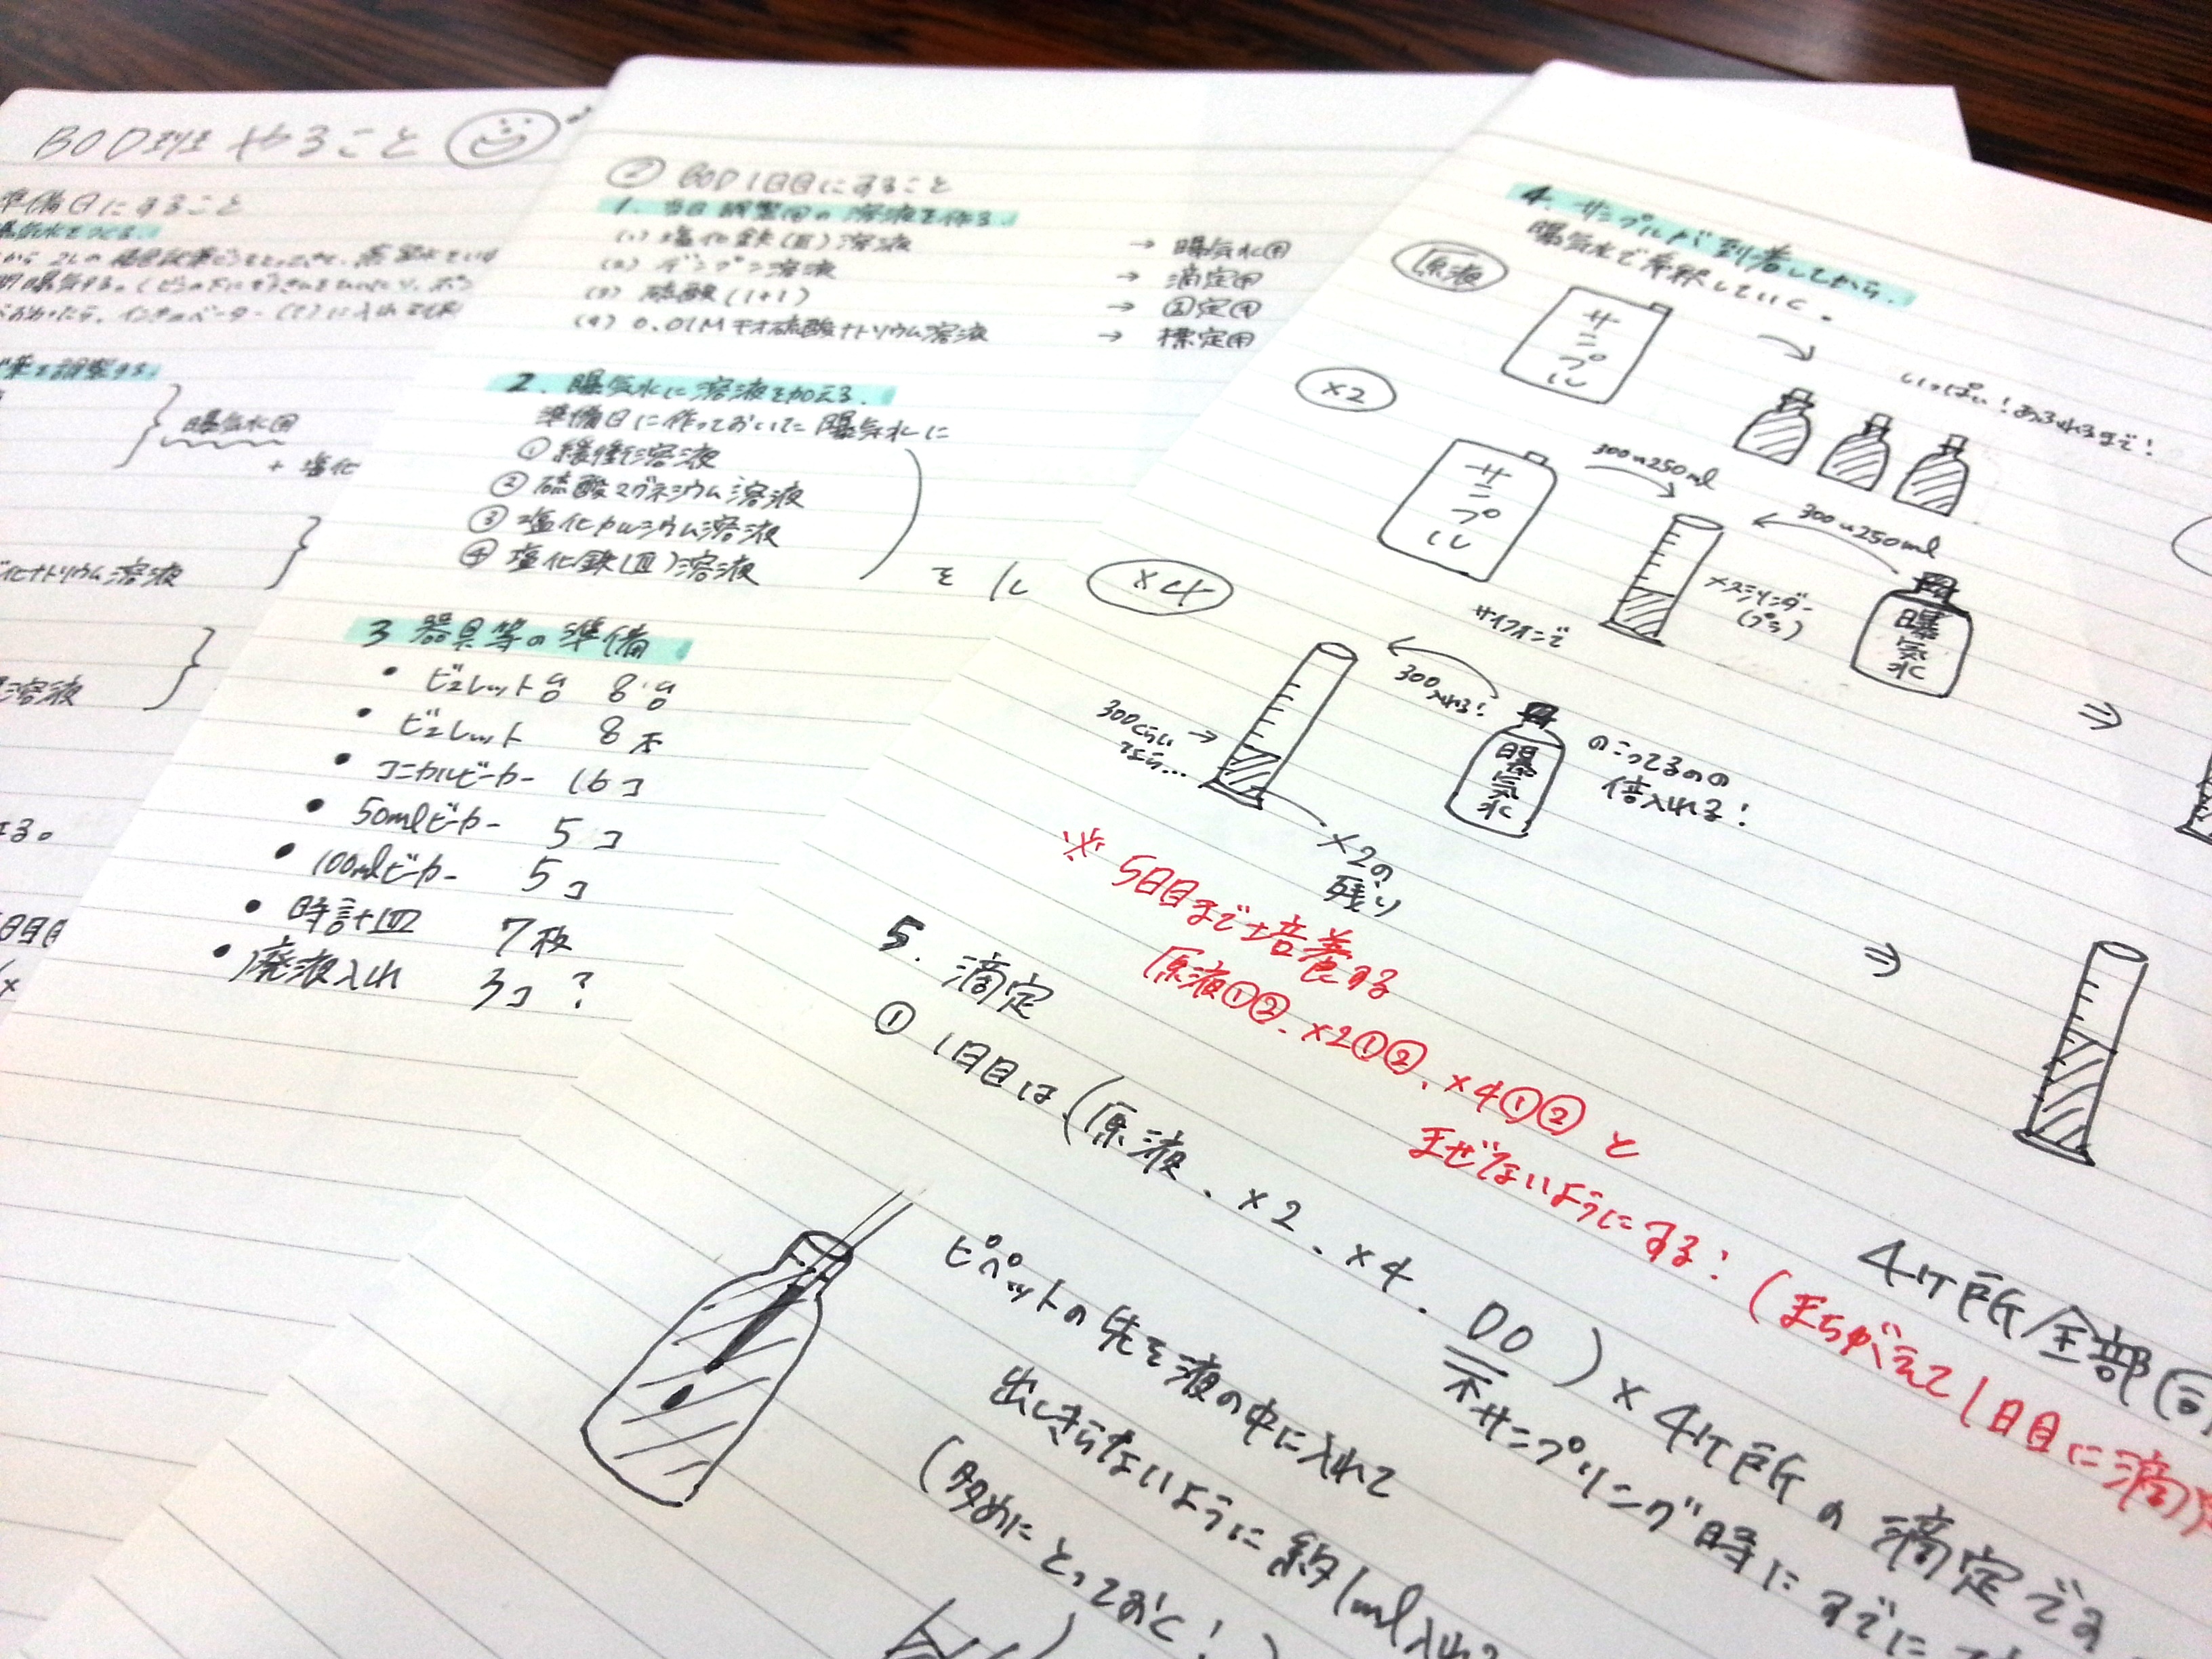 BOD班 やること
準備日にすること
曝気水をつくる。
準を調整する
曝気水用
+ 塩化
化ナトリウム溶液
溶液
② BOD 1日目にすること
1. 当日調製用の溶液を作る。
(1) 塩化鉄(Ⅲ)溶液 → 曝気水用
(2) デンプン溶液 → 滴定用
(3) 硫酸(1+1) → 固定用
(4) 0.01M チオ硫酸ナトリウム溶液 → 標定用
2. 曝気水に溶液を加える。
準備日に作っておいた曝気水に
① 緩衝溶液
② 硫酸マグネシウム溶液
③ 塩化カルシウム溶液
④ 塩化鉄(Ⅲ)溶液
を 1L
3 器具等の準備
• ビュレット台 8台
• ビュレット 8本
• コニカルビーカー 16コ
• 50mlビーカー 5コ
• 100mlビーカー 5コ
• 時計皿 7枚
• 廃液入れ 3コ?
4. サンプルが到着してから。
曝気水で希釈していく。
原液
サンプル
いっぱい!あふれるまで!
×2
サンプル
300~250ml
サイフォンで
メスシリンダー
(プラ)
300~250ml
曝気水
⇒
×4
300くらい
なら… →
300入れる!
曝気水
のこってるのの
倍入れる!
×2の
残り
⇒
※ 5日目まで培養する
原液①②. ×2①②. ×4①② と
まぜないようにする! (まちがえて1日目に滴定
4ヶ所全部(同
5. 滴定
① 1日目は(原液. ×2. ×4. DO) × 4ヶ所の滴定です
サンプリング時にすでに
ピペットの先を液の中に入れて
出しきらないように約1ml入れる
(多めにとっておく!)